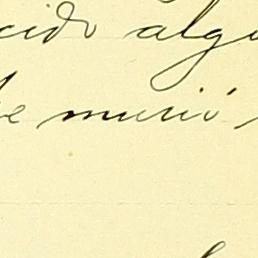 cido algu
e murió